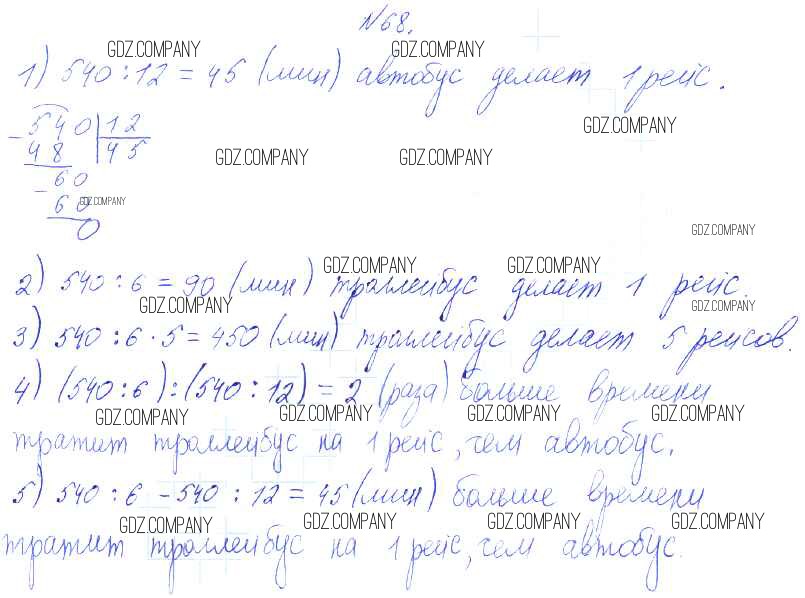 №68.
GDZ.COMPANY GDZ.COMPANY
1) 540 : 12 = 45 (мин) автобус делает 1 рейс.
GDZ.COMPANY
- 540 | 12
48 45
GDZ.COMPANY GDZ.COMPANY
- 60
60 GDZ.COMPANY
0
GDZ.COMPANY
GDZ.COMPANY GDZ.COMPANY
2) 540 : 6 = 90 (мин) троллейбус делает 1 рейс.
GDZ.COMPANY GDZ.COMPANY
3) 540 : 6 · 5 = 450 (мин) троллейбус делает 5 рейсов.
4) (540 : 6) : (540 : 12) = 2 (раза) больше времени
GDZ.COMPANY GDZ.COMPANY GDZ.COMPANY GDZ.COMPANY
тратит троллейбус на 1 рейс, чем автобус.
5) 540 : 6 - 540 : 12 = 45 (мин) больше времени
GDZ.COMPANY GDZ.COMPANY GDZ.COMPANY GDZ.COMPANY
тратит троллейбус на 1 рейс, чем автобус.